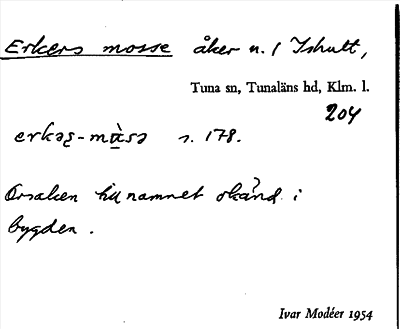 Erkers mosse åker n. / Ishult,
Tuna sn, Tunaläns hd, Klm. l.
204
s. 178.
Orsaken till namnet okänd i
bygden.
Ivar Modéer 1954